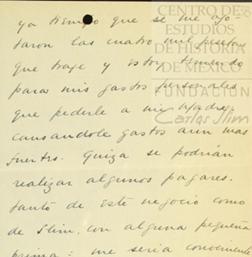 ya tiempo que se me ago-
taron los cuatro mil pesos
que traje y estoy teniendo
para mis gastos personales
que pedirle a mi padre,
causandole gastos aun mas
fuertes. Quiza se podrian
realizar algunos pagares.
tanto de este negocio como
de Slim, con alguna pequeña
prima; me seria conveniente
CENTRO DE
ESTUDIOS
DE HISTORIA
DE MÉXICO
FUNDACIÓN
Carlos Slim